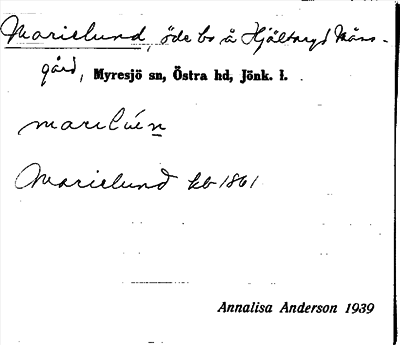 Marielund, öde bs å Hjältaryd Måns-
gård, Myresjö sn, Östra hd, Jönk. l.
marilúen
Marielund kb 1861
Annalisa Anderson 1939